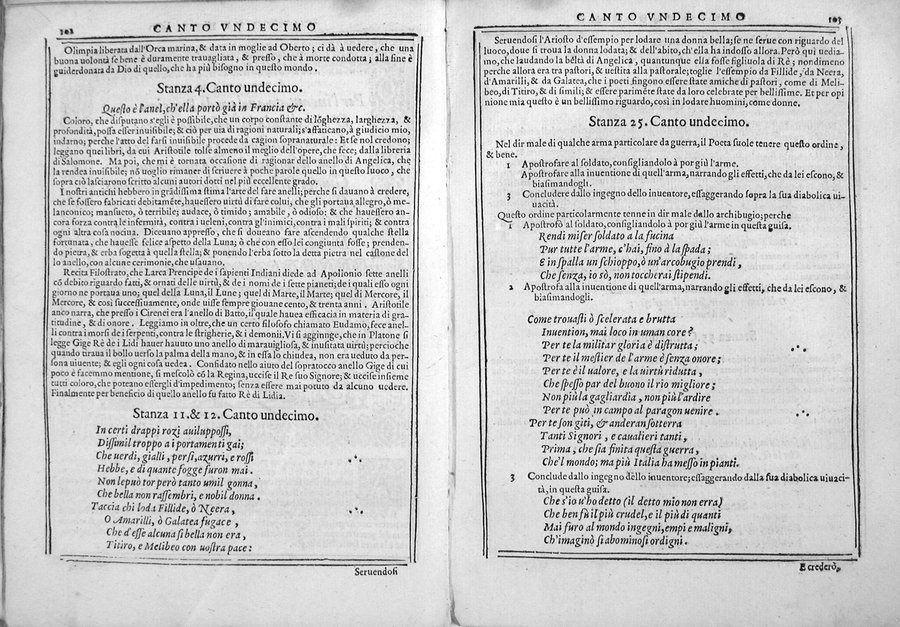 102 CANTO VNDECIMO
Olimpia liberata dall'Orca marina, & data in moglie ad Oberto; ci dà à uedere, che una
buona uolontà se bene è duramente trauagliata, & presso, che à morte condotta; alla fine è
guiderdonata da Dio di quello, che ha più bisogno in questo mondo.
Stanza 4. Canto undecimo.
Questo è l'anel, ch'ella portò già in Francia &c.
Coloro, che disputano s'egli è possibile, che un corpo constante di lõghezza, larghezza, &
profondità, possa esser inuisibile; & ciò per uia di ragioni naturali; s'affaticano, à giudicio mio,
indarno; perche l'atto del farsi inuisibile procede da cagion sopranaturale: Et se nol credono;
leggano quei libri, da cui Aristotile tolse almeno il meglio dell'opere, che fece; dalla libreria
di Salomone. Ma poi, che mi è tornata occasione di ragionar dello anello di Angelica, che
la rendea inuisibile; nõ uoglio rimaner di scriuere à poche parole quello in questo suoco, che
sopra ciò lasciarono scritto alcuni autori dotti nel più eccellente grado.
I nostri antichi hebbero in grãdissima stima l'arte del fare anelli; perche si dauano à credere,
che se fossero fabricati debitamẽte, hauessero uirtù di fare colui, che gli portaua allegro, ò me-
lanconico; mansueto, ò terribile; audace, ò timido; amabile, ò odioso: & che hauessero an-
cora forza contra le infermità, contra i ueleni, contra gl'inimici, contra i mali spiriti; & contra
ogni altra cosa nociua. Diceuano appresso, che si doueano fare ascendendo qualche stella
fortunata, che hauesse felice aspetto della Luna; ò che con esso lei congiunta fosse; prenden-
do pietra, & erba sogetta à quella stella; & ponendo l'erba sotto la detta pietra nel castone del
lo anello, con alcune cerimonie, che usauano.
Recita Filostrato, che Larca Prencipe de i sapienti Indiani diede ad Apollonio sette anelli
cõ debito riguardo fatti, & ornati delle uirtù, & de i nomi de i sette pianeti; de i quali esso ogni
giorno ne portaua uno; quel della Luna, il Lune; quel di Marte, il Marte; quel di Mercore, il
Mercore, & così successiuamente, onde uisse sempre giouane cento, & trenta anni. Aristotile
anco narra, che presso i Cirenei era l'anello di Batto, il quale hauea efficacia in materia di gra-
titudine, & di onore. Leggiamo in oltre, che un certo filosofo chiamato Eudamo, fece anel-
li contra i morsi de i serpenti, contra le strigherie, & i demonii. Vi si aggiunge, che in Platone si
legge Gige Rè de i Lidi hauer hauuto uno anello di marauigliosa, & inusitata uirtù; percioche
quando tiraua il bollo uerso la palma della mano, & in essa lo chiudea, non era ueduto da per-
sona uiuente; & egli ogni cosa uedea. Confidato nello aiuto del sopratocco anello Gige di cui
poco è facemmo mentione, si mescolò cõ la Regina, uccise il Re suo Signore; & uccise insieme
tutti coloro, che poteano essergli d'impedimento; senza essere mai potuto da alcuno uedere.
Finalmente per beneficio di quello anello fu fatto Rè di Lidia.
Stanza 11. & 12. Canto undecimo.
In certi drappi rozi auiluppossi,
Dissimil troppo a i portamenti gai;
Che uerdi, gialli, persi, azurri, e rossi
Hebbe, e di quante fogge furon mai.
Non le può tor però tanto umil gonna,
Che bella non rassembri, e nobil donna.
Taccia chi loda Fillide, ò Neera,
O Amarilli, ò Galatea fugace,
Che d'esse alcuna sì bella non era,
Titiro, e Melibeo con uostra pace:
Seruendosi
CANTO VNDECIMO 103
Seruendosi l'Ariosto d'essempio per lodare una donna bella; se ne serue con riguardo del
luoco, doue si troua la donna lodata; & dell'abito, ch'ella ha indosso allora. Però qui uedia-
mo, che laudando la beltà di Angelica, quantunque ella fosse figliuola di Rè; nondimeno
perche allora era tra pastori, & uestita alla pastorale; toglie l'essempio da Fillide, da Neera,
d'Amarilli, & da Galatea, che i poeti fingono essere state amiche di pastori, come di Meli-
beo, di Titiro, & di simili; & essere parimẽte state da loro celebrate per bellissime. Et per opi
nione mia questo è un bellissimo riguardo, così in lodare huomini, come donne.
Stanza 25. Canto undecimo.
Nel dir male di qualche arma particolare da guerra, il Poeta suole tenere questo ordine,
& bene.
1 Apostrofare al soldato, consigliandolo à por giù l'arme.
Apostrofare alla inuentione di quell'arma, narrando gli effetti, che da lei escono, &
biasimandogli.
3 Concludere dallo ingegno dello inuentore, essaggerando sopra la sua diabolica ui-
uacità.
Questo ordine particolarmente tenne in dir male dello archibugio; perche
1 Apostrofò al soldato, consigliandolo à por giù l'arme in questa guisa.
Rendi miser soldato a la fucina
Pur tutte l'arme, c'hai, fino à la spada;
E in spalla un schioppo, ò un'arcobugio prendi,
Che senza, io sò, non toccherai stipendi.
2 Apostrofa alla inuentione di quell'arma, narrando gli effetti, che da lei escono, &
biasimandogli.
Come trouasti ò scelerata e brutta
Inuention, mai loco in uman core?
Per te la militar gloria è distrutta;
Per te il mestier de l'arme è senza onore;
Per te è il ualore, e la uirtù ridutta,
Che spesso par del buono il rio migliore;
Non più la gagliardia, non più l'ardire
Per te può in campo al paragon uenire.
Per te son giti, & anderan sotterra
Tanti Signori, e caualieri tanti,
Prima, che sia finita questa guerra,
Che'l mondo; ma più Italia ha messo in pianti.
3 Conclude dallo ingegno dello inuentore; essaggerando dalla sua diabolica uiuaci-
tà, in questa guisa.
Che s'io u'ho detto (il detto mio non erra)
Che ben fù il più crudel, e il più di quanti
Mai furo al mondo ingegni, empi e maligni,
Ch'imaginò sì abominosi ordigni.
E crederò,